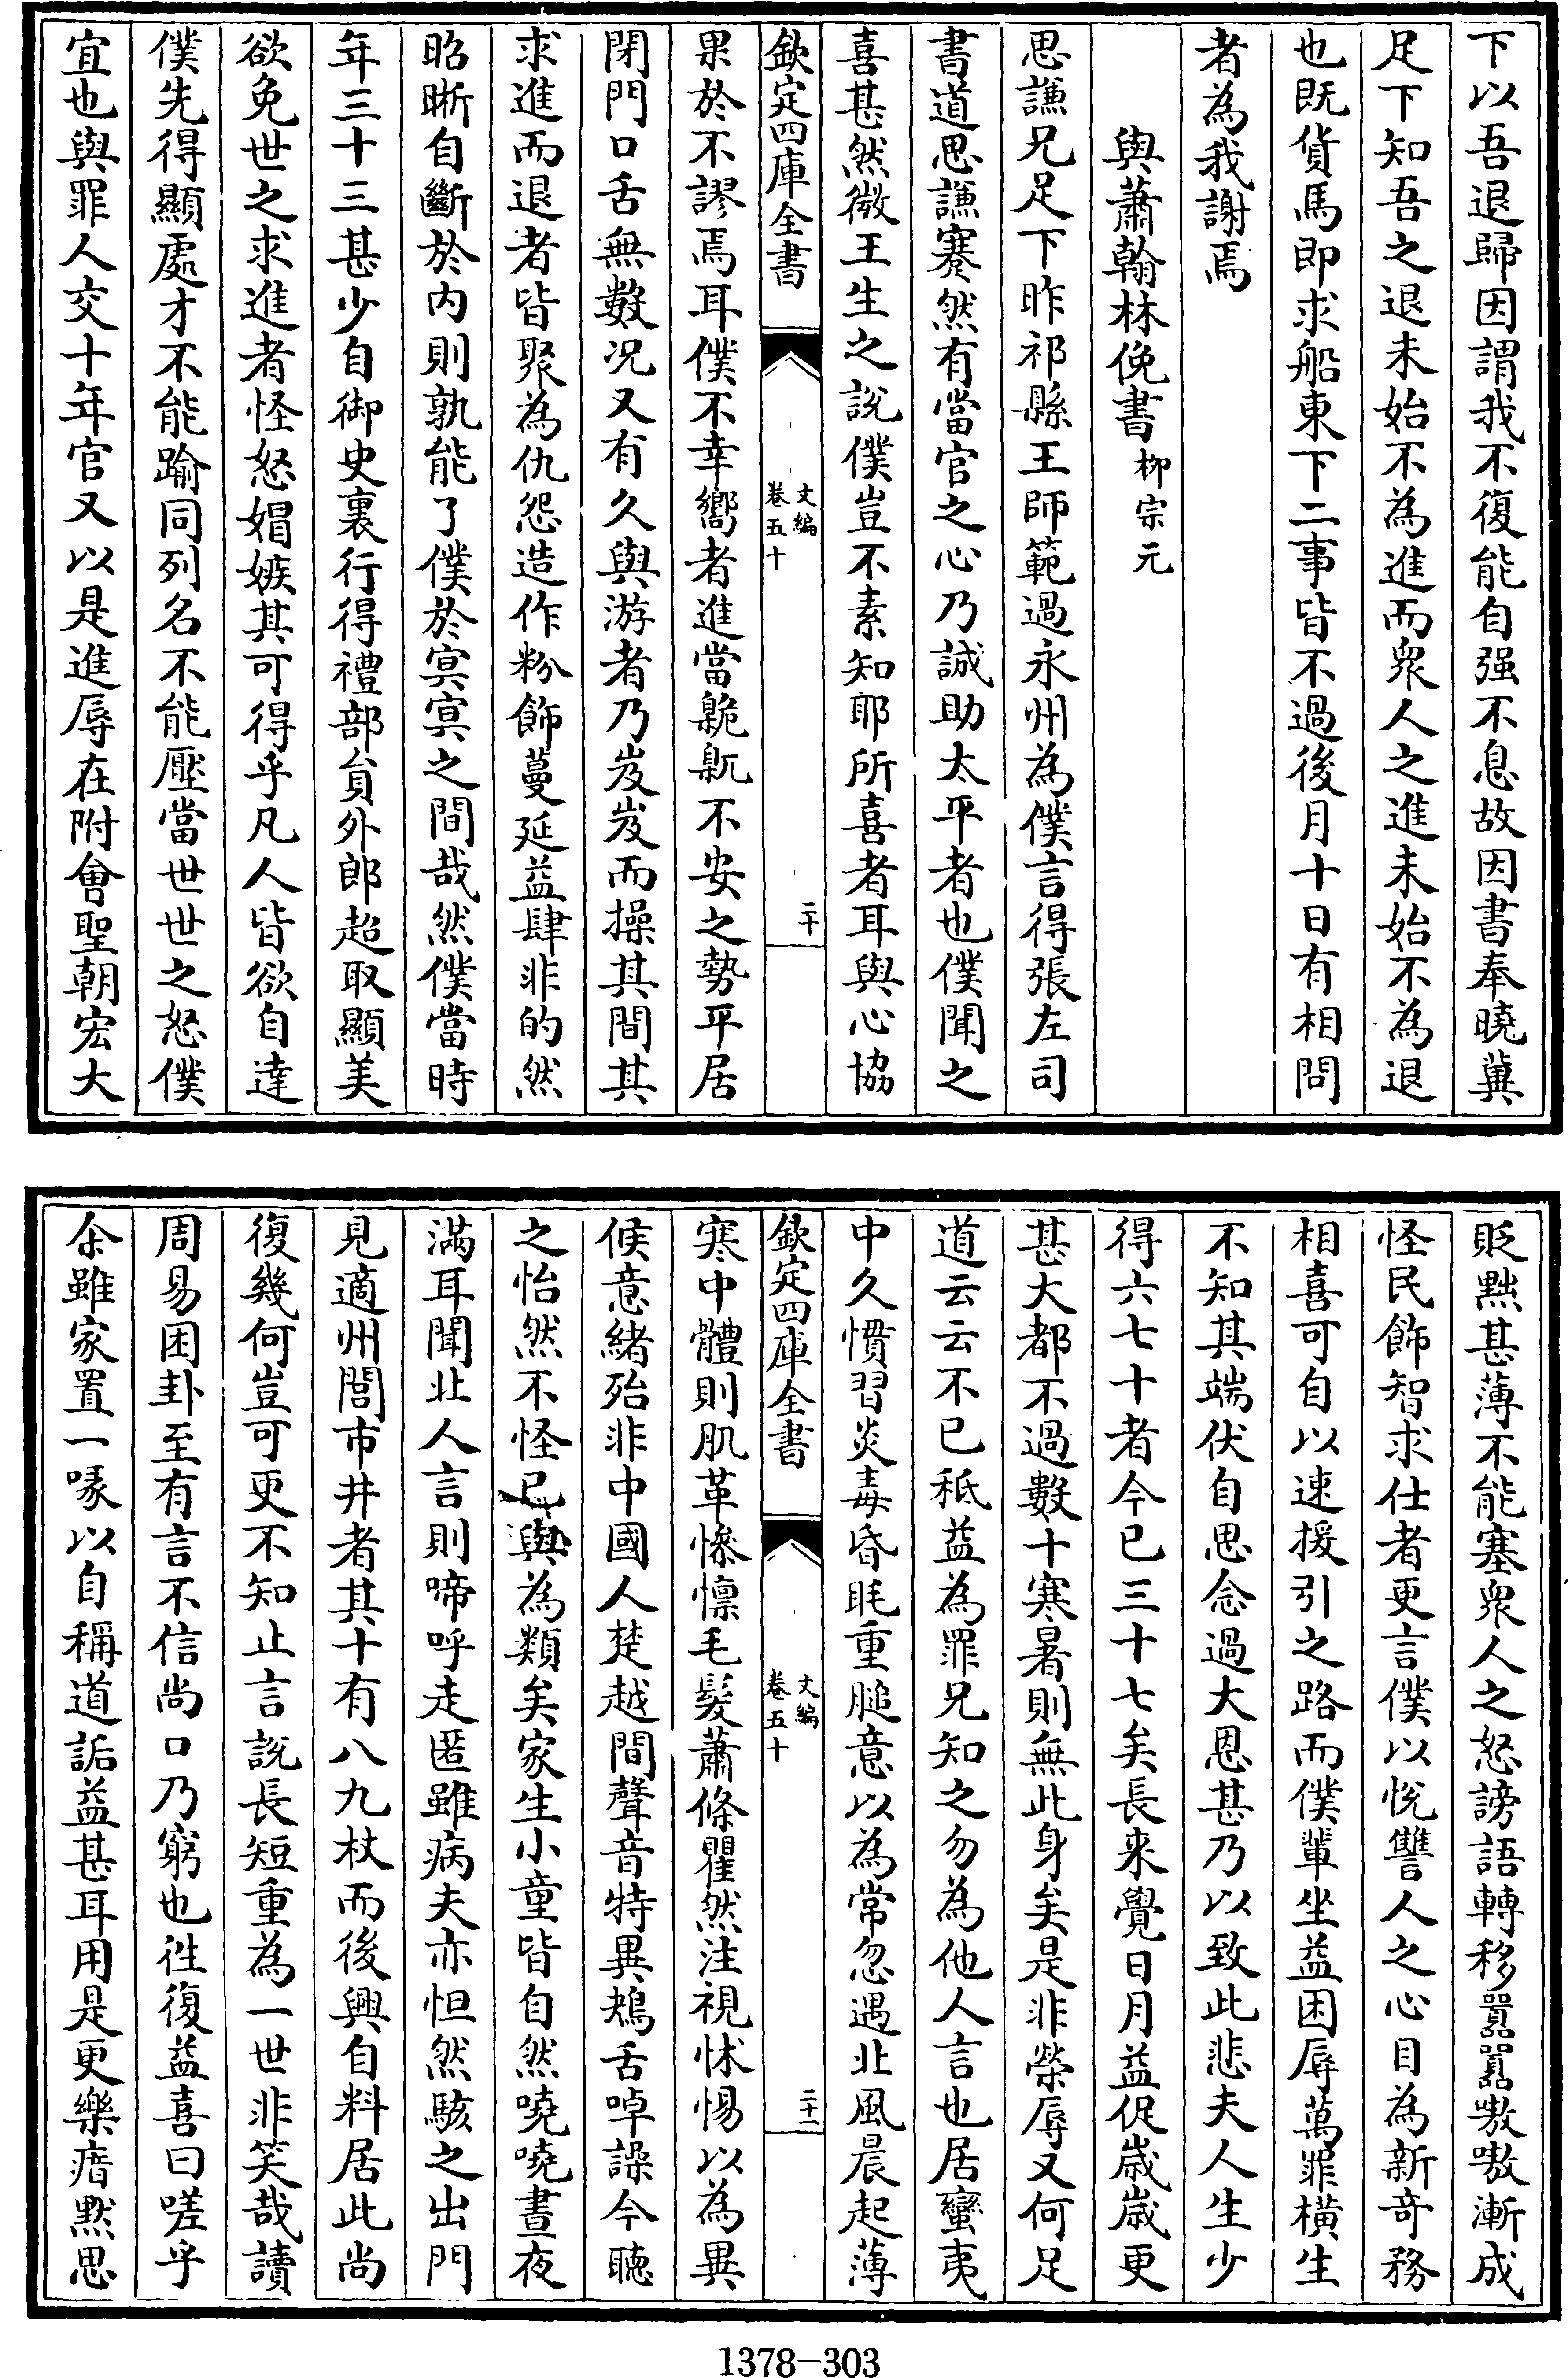 下以吾退歸因謂我不復能自强不息故因書奉曉冀
足下知吾之退未始不為進而衆人之進未始不為退
也既貨馬即求船東下二事皆不過後月十日有相問
者為我謝焉
與蕭翰林俛書 柳宗元
思謙兄足下昨祁縣王師範過永州為僕言得張左司
書道思謙蹇然有當官之心乃誠助太平者也僕聞之
喜甚然微王生之說僕豈不素知耶所喜者耳與心協
欽定四庫全書
文編
卷五十
二十
果於不謬焉耳僕不幸嚮者進當臲卼不安之勢平居
閉門口舌無數况又有久與游者乃岌岌而操其間其
求進而退者皆聚為仇怨造作粉飾蔓延益肆非的然
昭晣自斷於内則孰能了僕於㝠㝠之間哉然僕當時
年三十三甚少自御史裏行得禮部貟外郎超取顯美
欲免世之求進者怪怒媢嫉其可得乎凡人皆欲自達
僕先得顯處才不能踰同列名不能壓當世世之怒僕
宜也與罪人交十年官又以是進辱在附會聖朝宏大
貶黜甚薄不能塞衆人之怒謗語轉移囂囂嗷嗷漸成
怪民飾智求仕者更言僕以悅讐人之心目為新竒務
相喜可自以速援引之路而僕輩坐益困辱萬罪横生
不知其端伏自思念過大恩甚乃以致此悲夫人生少
得六七十者今已三十七矣長来覺日月益促歲歲更
甚大都不過數十寒暑則無此身矣是非榮辱又何足
道云云不已秪益為罪兄知之勿為他人言也居蠻夷
中久慣習炎毒昏眊重膇意以為常忽遇北風晨起薄
欽定四庫全書
文編
卷五十
二十一
寒中體則肌革慘懍毛髮蕭條瞿然注視怵惕以為異
候意緒殆非中國人楚越間聲音特異鴂舌啅譟今聽
之怡然不怪已與為類矣家生小童皆自然嘵嘵晝夜
滿耳聞北人言則啼呼走匿雖病夫亦怛然駭之出門
見適州閭市井者其十有八九杖而後興自料居此尚
復幾何豈可更不知止言說長短重為一世非笑哉讀
周易困卦至有言不信尚口乃窮也徃復益喜曰嗟乎
余雖家置一喙以自稱道詬益甚耳用是更樂瘖默思
1378—303